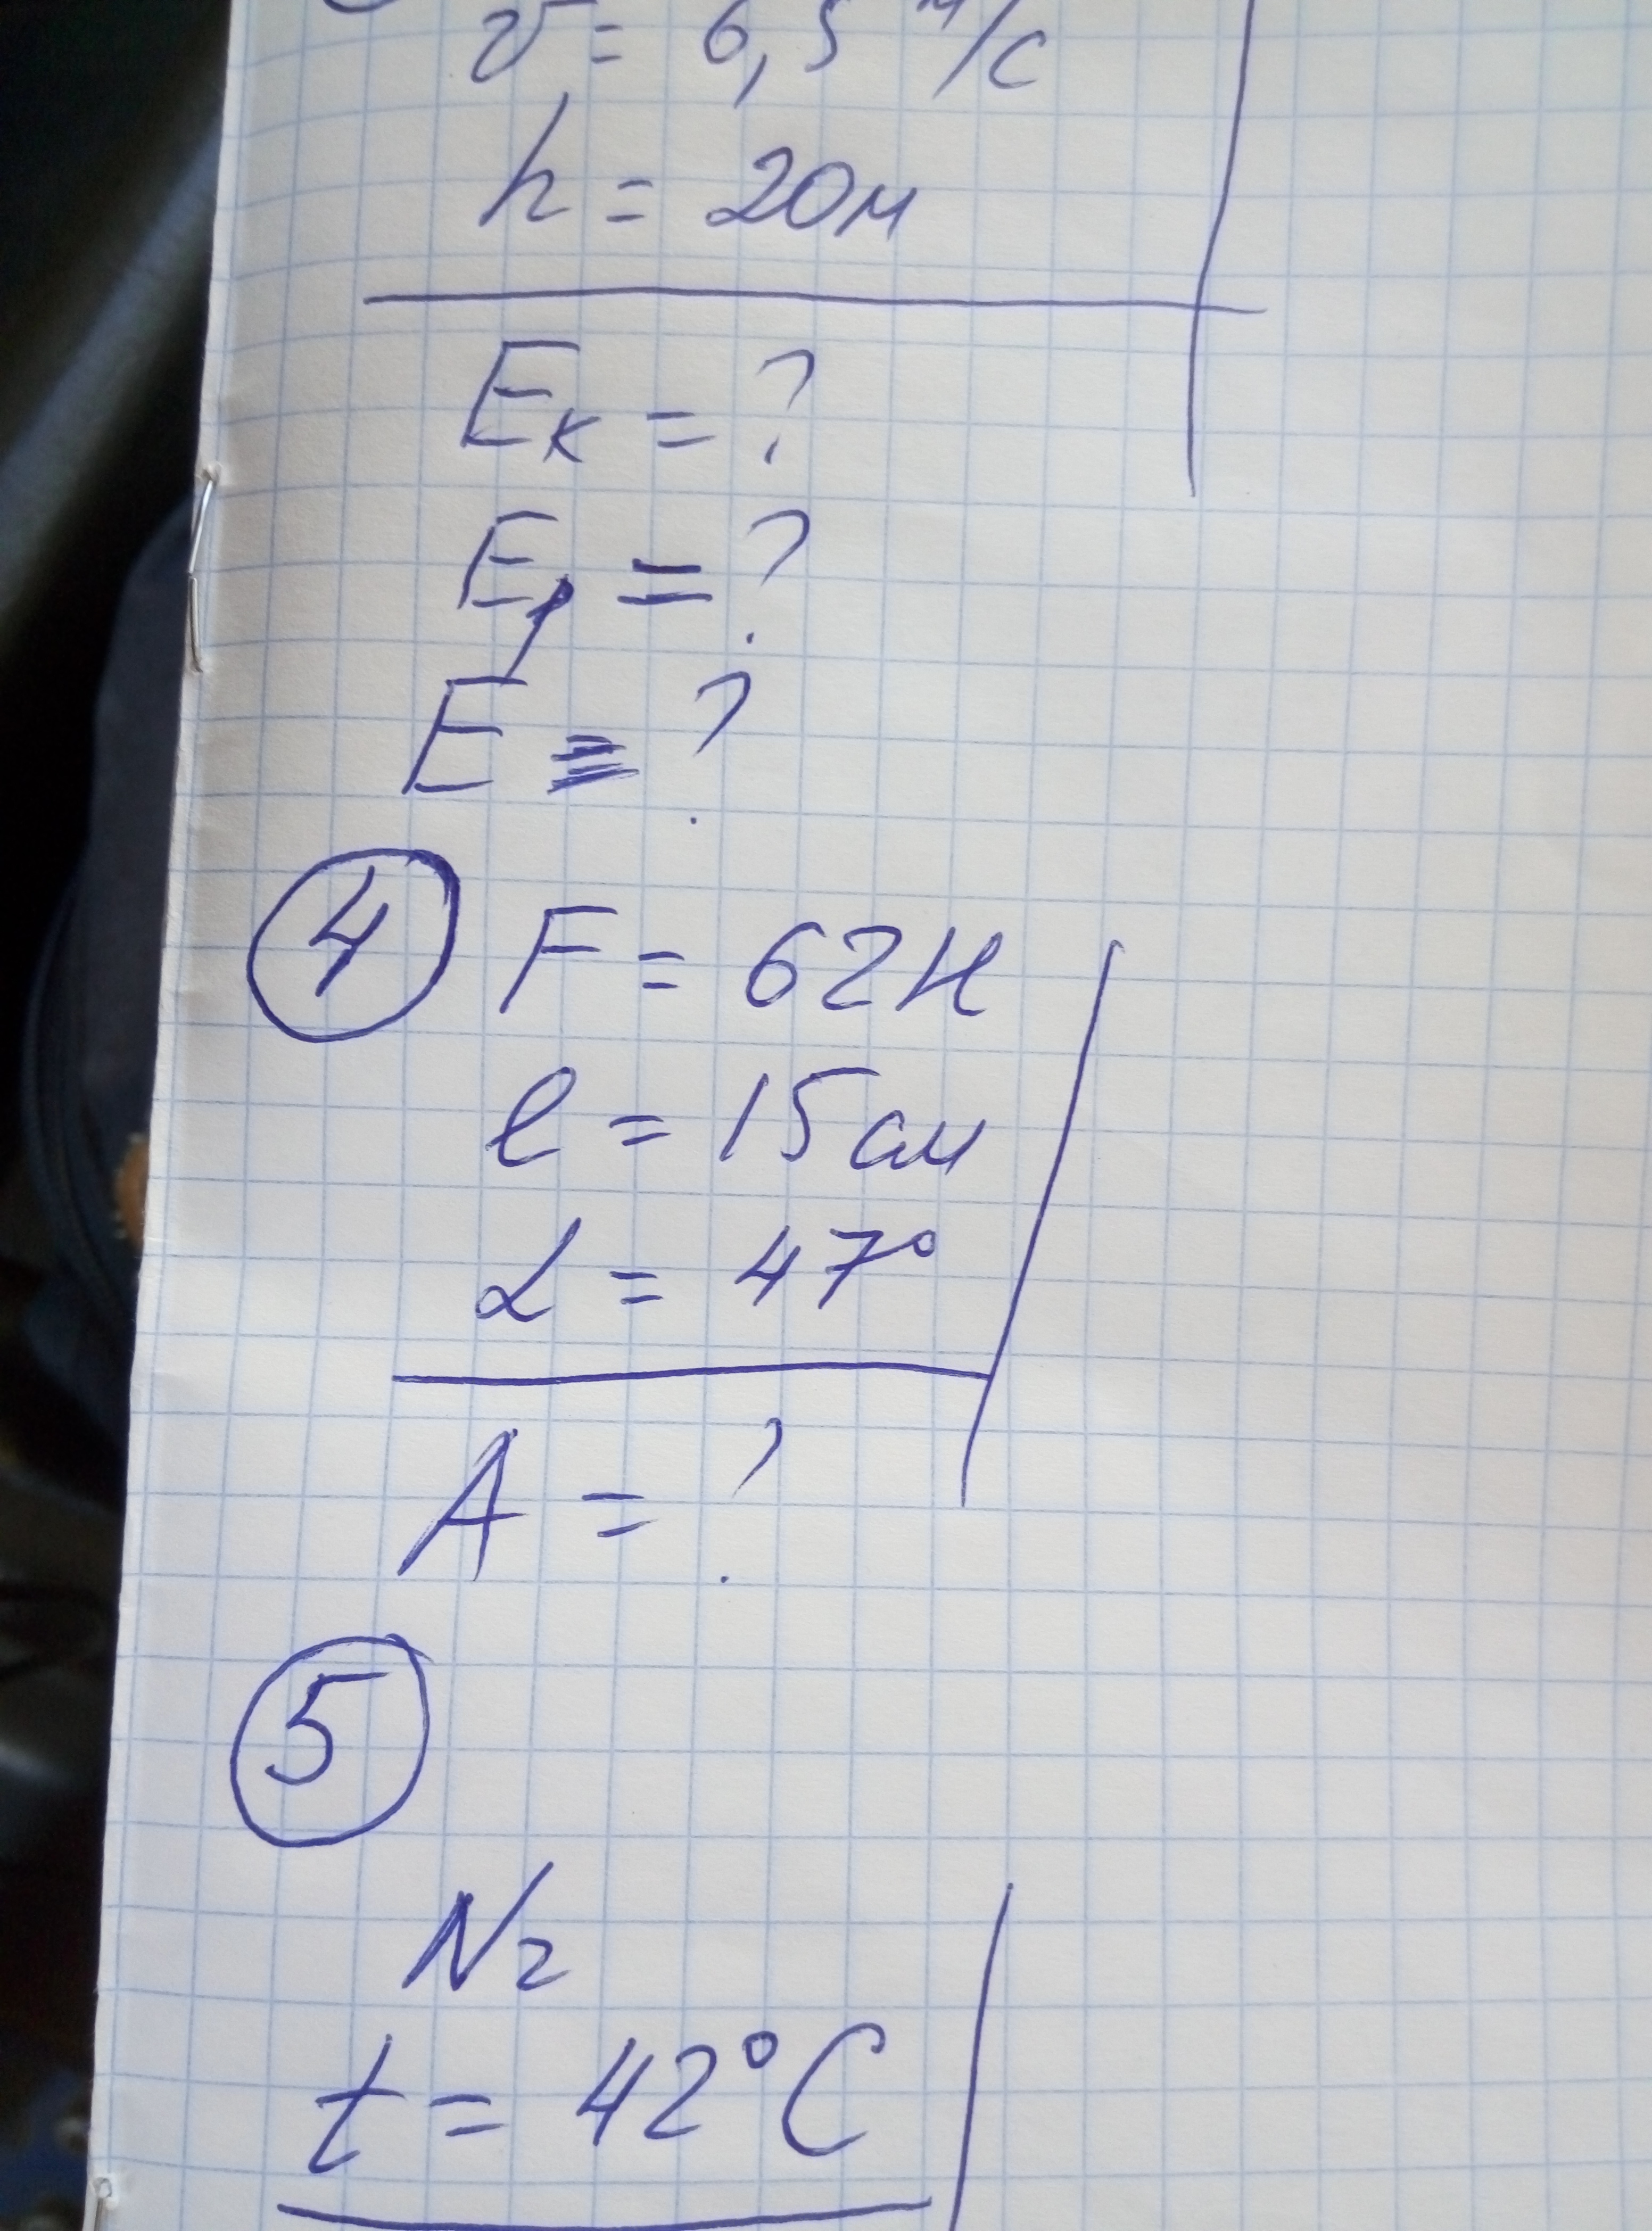 v = 6,5 м/с
h = 20м
Eк = ?
Ep = ?
E = ?
4 F = 62Н
l = 15см
α = 47°
A = ?
5
N2
t = 42°C